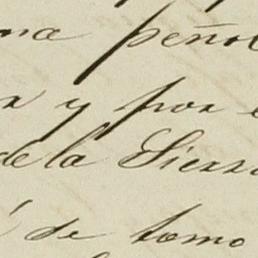 peño
y por
de la Sierra
de tomo